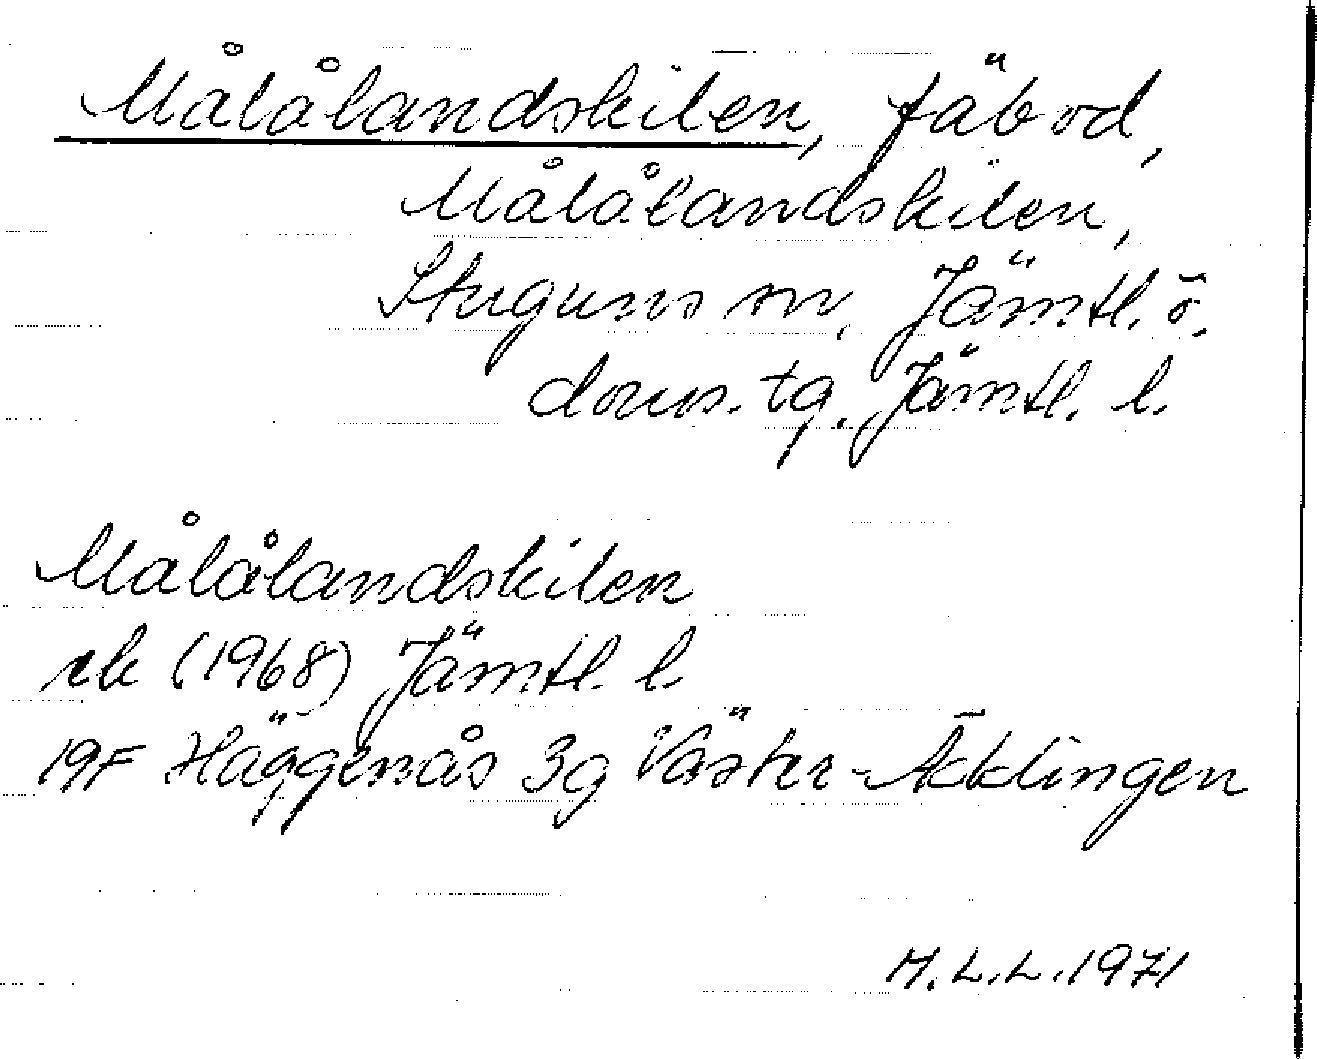 Målålandskilen, fäbod,
Målålandskilen,
Stuguns sn, Jämtl. ö.
doms. tg. Jämtl. l.
Målålandskilen
rk (1968) Jämtl. l.
19F Häggenås 3g Väster-Äcklingen
M.L.L. 1971